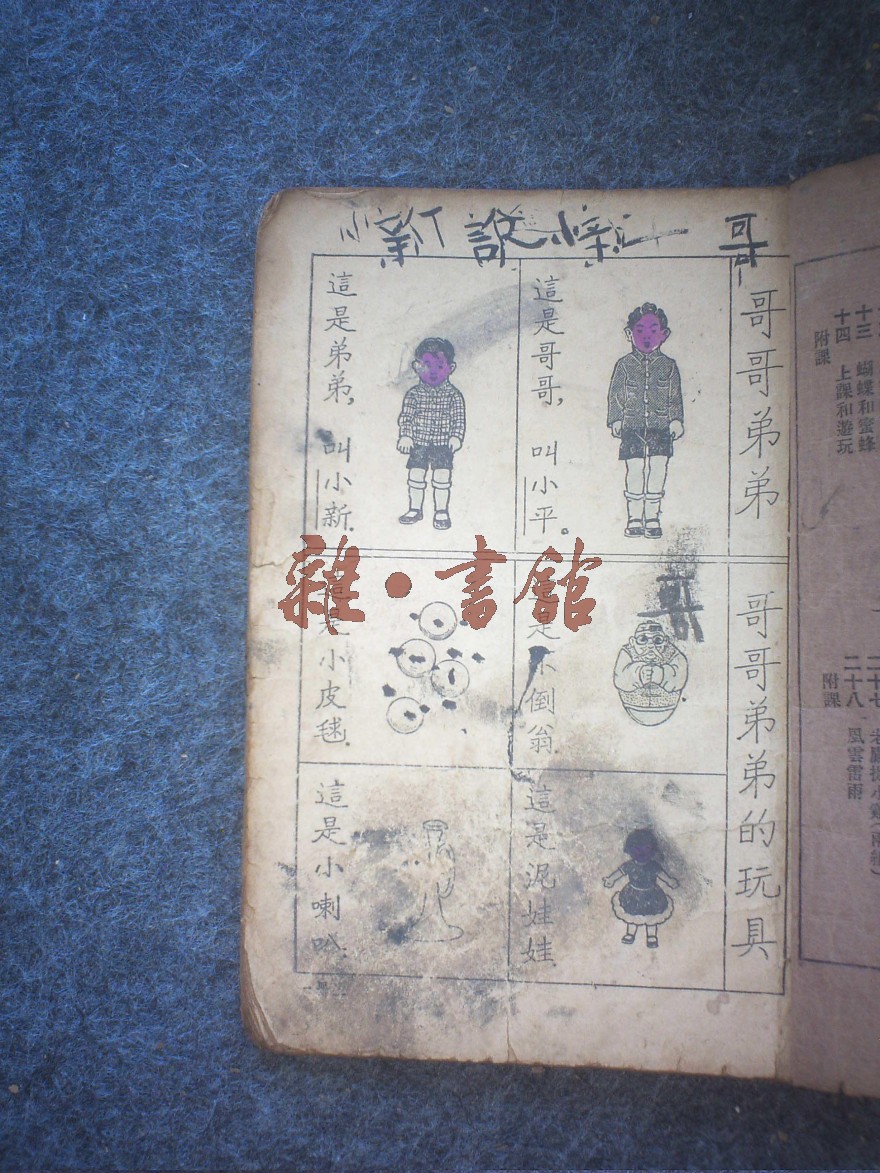 附課
十三 蝴蝶和蜜蜂
十四 上課和遊玩
附課
二十七 老鷹捉小雞(附細)
二十八 風雲雷雨
附課
哥
說
新
哥哥弟弟
這是哥哥，叫小平。
這是弟弟，叫小新.
哥哥弟弟的玩具
哥
是不倒翁.
這是小皮毬.
這是泥娃娃.
這是小喇叭.
雜·書館